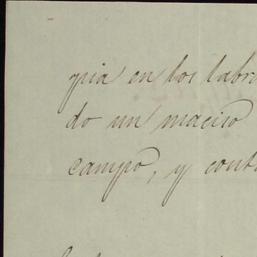 pia en los labra
do un maciso
campo, y cont